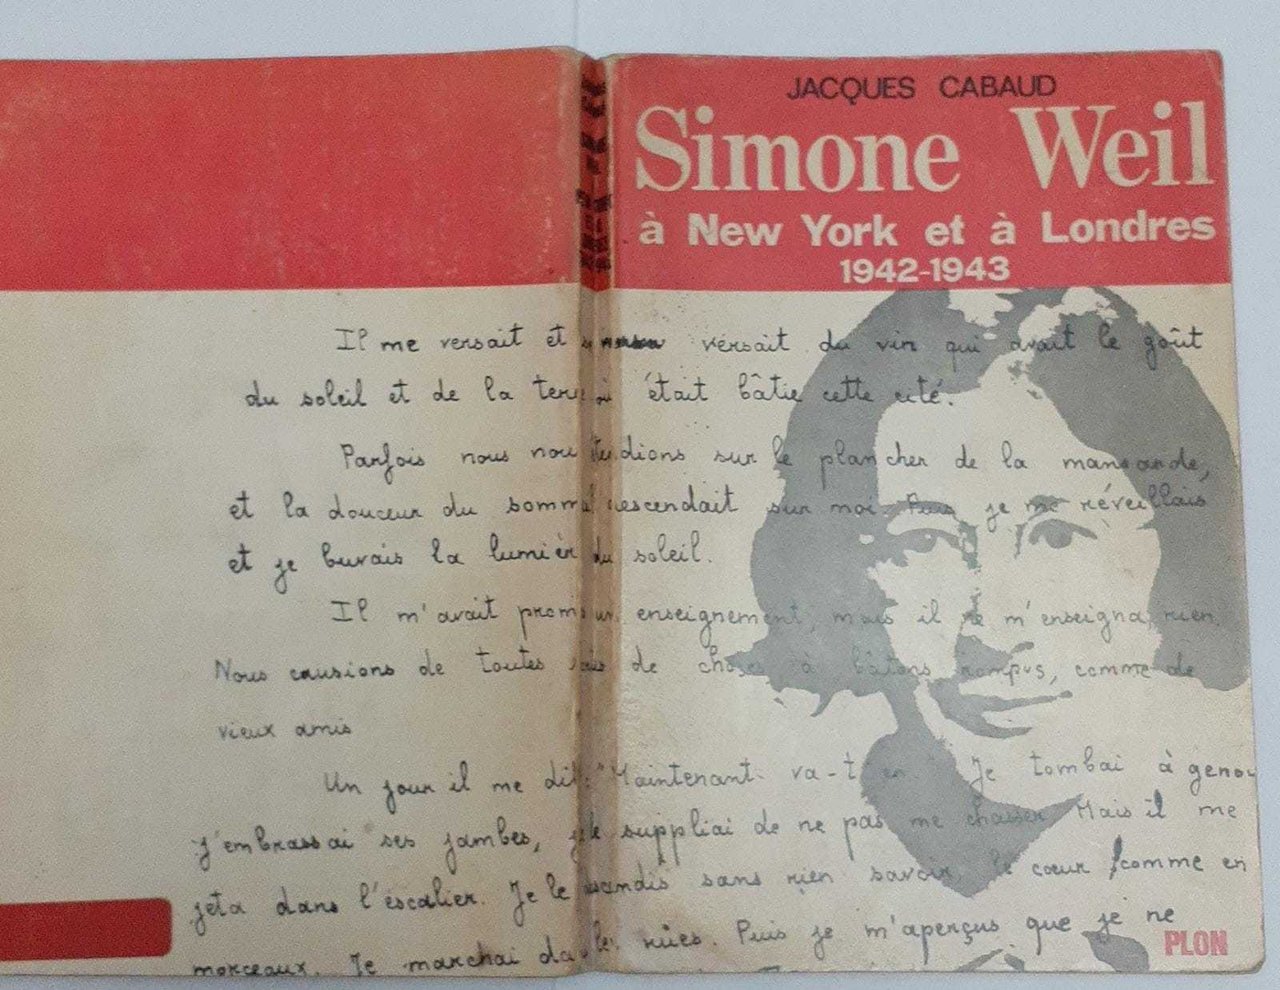 JACQUES CABAUD
Simone Weil
à New York et à Londres
1942-1943
Il me versait et versait du vin qui avait le goût
du soleil et de la terre où était bâtie cette cité.
Parfois nous nous étendions sur le plancher de la mansarde,
et la douceur du sommeil descendait sur moi. Puis je me réveillais
et je buvais la lumière du soleil.
Il m'avait promis un enseignement, mais il ne m'enseigna rien.
Nous causions de toutes de choses à bâtons rompus, comme de
vieux amis
Un jour il me dit: "Maintenant va-t en" Je tombai à genou
j'embrassai ses jambes, je le suppliai de ne pas me chasser Mais il me
jeta dans l'éscalier. Je le descendis sans rien savoir, le cœur comme en
morceaux. Je marchai dans les rues. Puis je m'aperçus que je ne
PLON